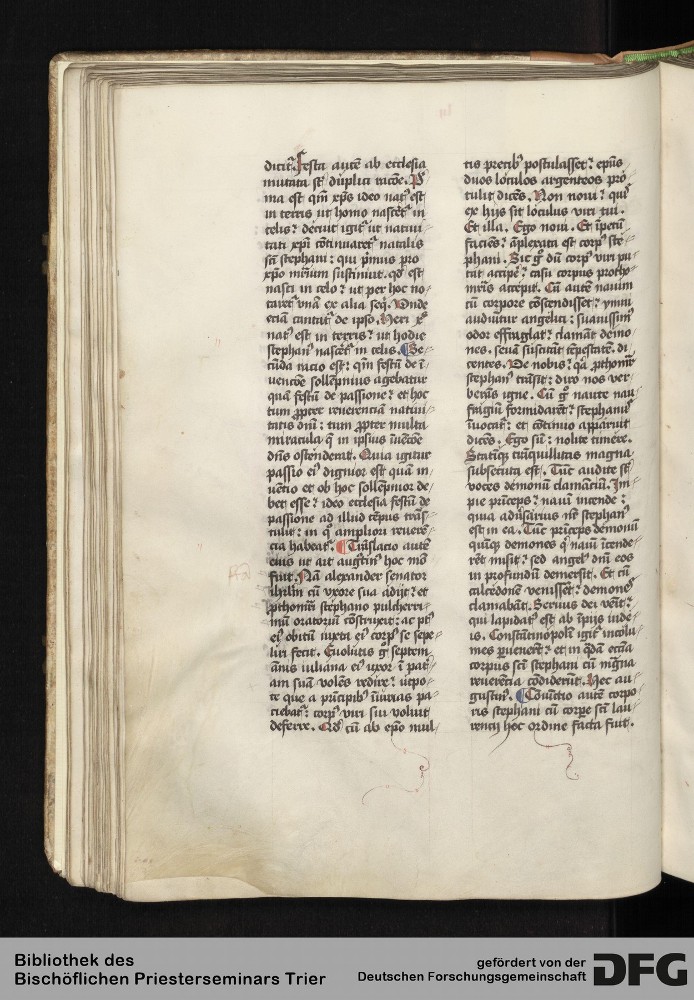 dicitᷣ. Festa autē ab ecclesia
mutata st̄ duplici racōe. Pⁱ
ma est qm̄ xp̄s ideo natᷤ est
in terris ut homo nascetᷣ in
celis? decuit igitᷣ ut natiui
tati xp̄i cōtinuaretᷣ natalis
sc̄i stephani: qui pⁱmus pro
xp̄o mr̄ium sustinuit. qd̓ est
nasci in celo? ut per hoc no
taretᷣ vnā ex alia seqⁱ. Vnde
eciā cantatᷣ de ipso. Heri xp̄s
natᷤ est in terris? ut hodie
stephanᷤ nascetᷣ in celis. Se
cūda racio est: qm̄ festū de ī
uencōe sollēpnius agebatur
quā festū de passione? et hoc
tum ꝓpter reuerenciā natiui
tatis dn̄i: tum ꝓpter multa
miracula q̄ in ipsius īuēcōe
dn̄s ostenderat. Quia igitur
passio eiᷤ dignior est quā in
uētio et ob hoc sollēpnior de
bet esse? ideo ecclesia festū de
passione ad illud tēpus trās
tulit: in qͦ ampliori reuerē
cia habeatᷣ. Trāslacio autē
eius ut ait augᷤtinᷤ hoc mō
fuit. Nā alexander senator
ihrlm̄ cū vxore sua adijt? et
ꝓthomr̄i stephano pulcherri
mū oratoriū cōstruxit: ac pᷤt
eiᷤ obitū iuxta eiᷤ corpᷤ se sepe
liri fecit. Euolutis gͦ septem
ānis iuliana eiᷤ vxor ī patⁱ
am suā volēs redire? utpo
te que a pⁱncipibᷤ iniurias pa
ciebatᷣ: corpᷤ viri sui voluit
deferre. Qd̓ cū ab ep̄o mul
tis precibᷤ postulasset? ep̄us
duos loculos argenteos pro
tulit dicēs. Non noui? quⁱs
ex hijs sit loculus viri tui.
Et illa. Ego noui. Et īpetū
faciēs? āplexata est corpᷤ ste
phani. Sic gͦ dū corpᷤ viri pu
tat accipe? casu corpus protho
mr̄is accepit. Cū autē nauim
cū corpore cōscendisset? ymni
audiūtur angelici: suauissimᷤ
odor efflaglat? clamāt demo
nes. seuā suscitāt tēpestatē. di
centes. Ve nobis? qͣ ꝓthomr̄
stephanᷤ trāsit? diro nos ver
berās igne. Cū gͦ naute nau
fragiū formidarēt? stephanū
īuocāt: et cōtinuo apparuit
dicēs. Ego sū: nolite timere.
Statīqꝫ trāquillitas magna
subsecuta est. Tūc audite st̄
voces demonū clamanciū. Im
pie pⁱnceps? nauī incende:
quia aduᷤarius nr̄ stephanᷤ
est in ea. Tūc pⁱnceps demonū
quīqꝫ demones qͥ nauī īcende
rēt misit? sed angelᷤ dn̄i eos
in profundū demersit. Et cū
calcedonē venisset? demones
clamabāt. Seruus dei venit?
qui lapidatᷤ est ab īpijs iude
is. Constātinopolī igitᷣ incolu
mes ꝑuenerūt? et in qͣdā ecc̄ia
corpus sc̄i stephani cū magͣna
reuerēcia cōdiderūt. Hec au
gustinᷤ. Coniūctio autē corpo
ris stephani cū corpe sc̄i lau
rencij hoc ordine facta fuit.
Bibliothek des
Bischöflichen Priesterseminars Trier
gefördert von der
Deutschen Forschungsgemeinschaft
DFG